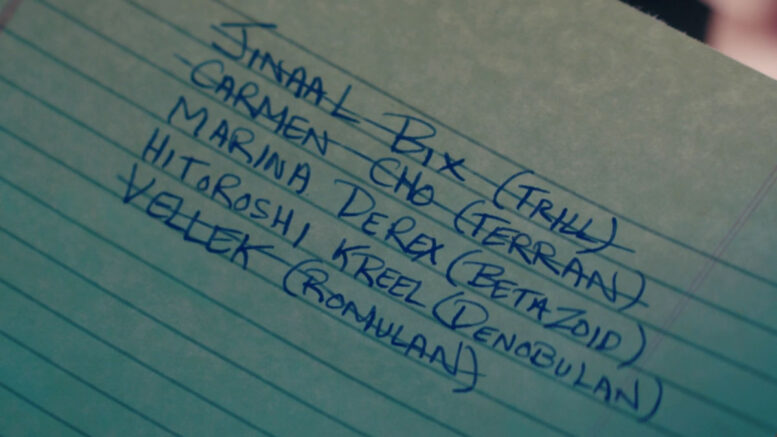 JINAAL BIX (TRILL)
CARMEN CHO (TERRAN)
MARINA DEREX (BETAZOID)
HITOROSHI KREEL (DENOBULAN)
VELLEK (ROMULAN)